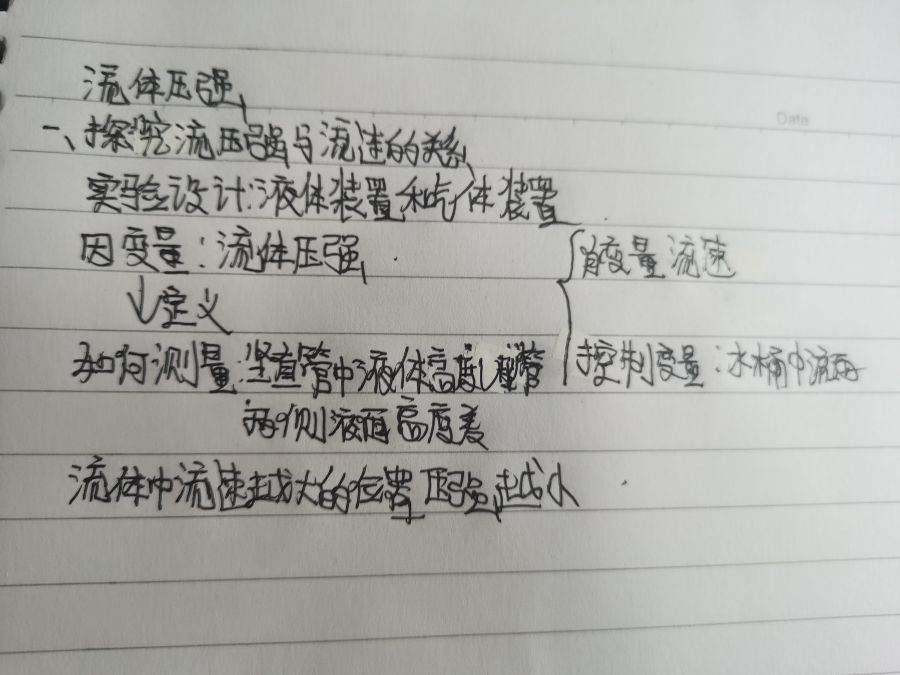 流体压强
一、探究流压强与流速的关系
实验设计:液体装置和气体装置
因变量:流体压强
自变量流速
↓定义
如何测量:竖直管中液体高度U型管
控制变量:水桶中液面
两侧液面高度差
流体中流速越大的位置压强越小
Date